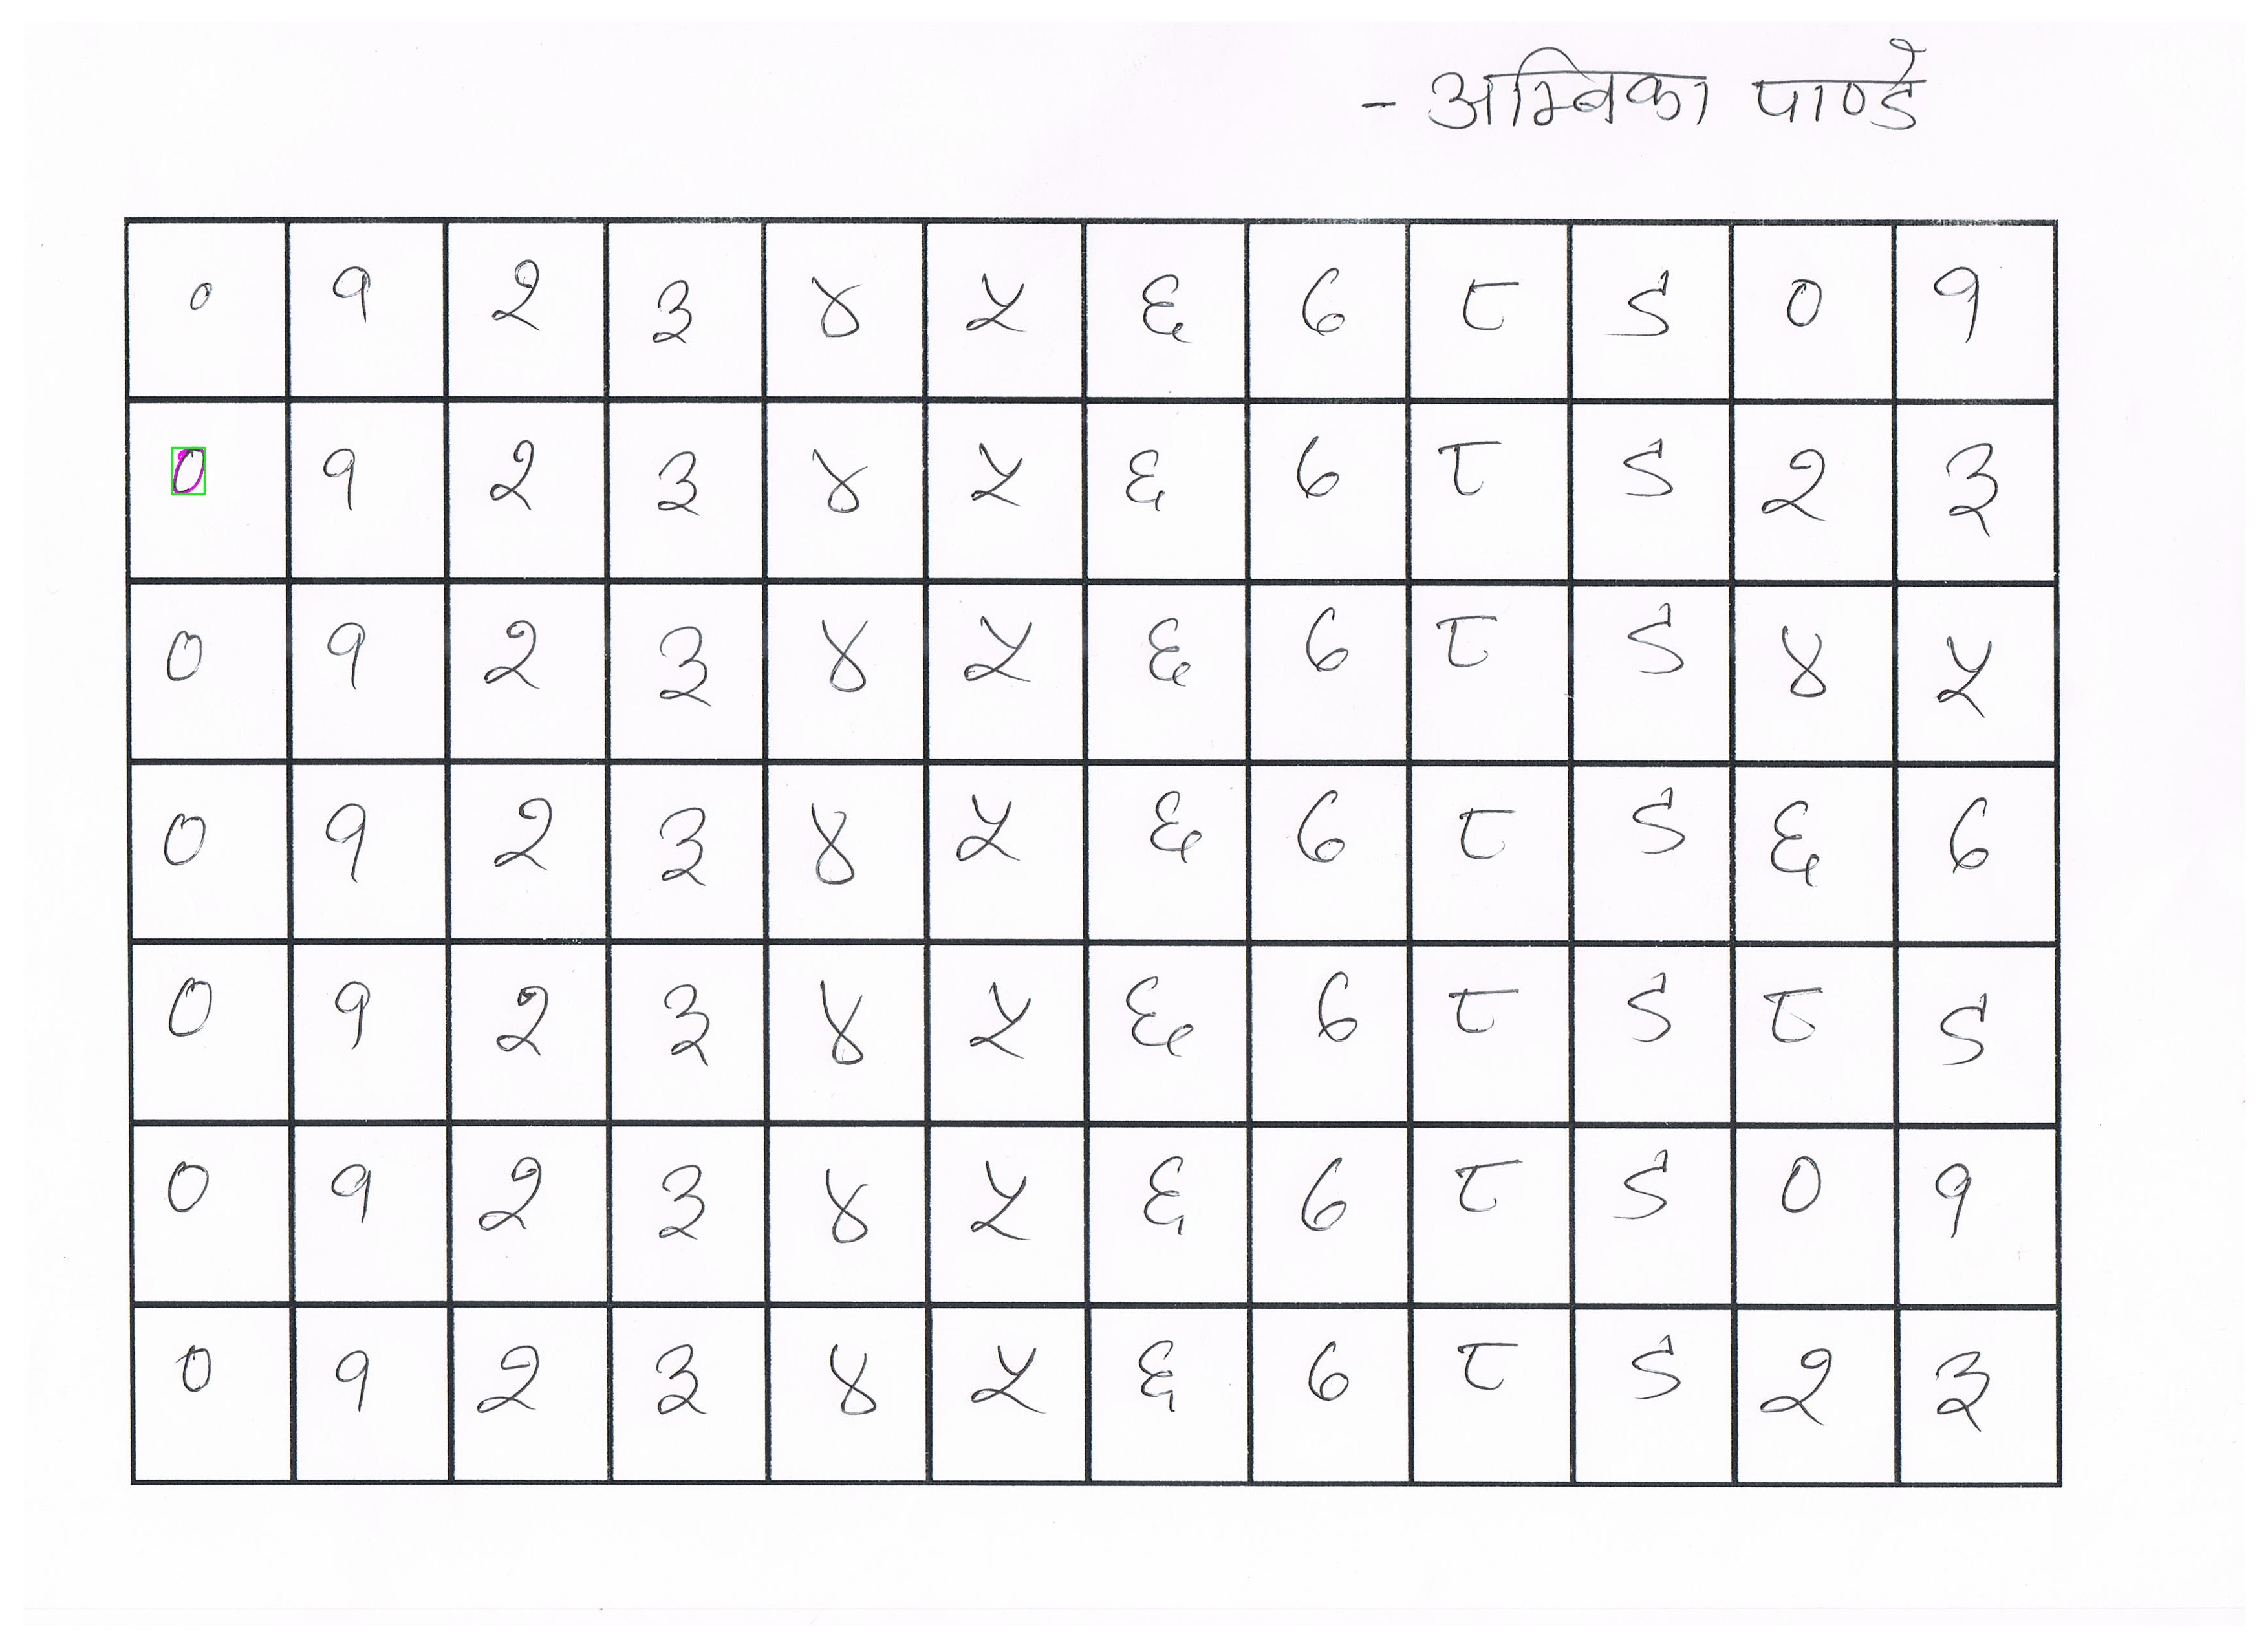 - अम्बिका पाण्डे
० १ २ ३ ४ ५ ६ ७ ८ ९ ० १
० १ २ ३ ४ ५ ६ ७ ८ ९ २ ३
० १ २ ३ ४ ५ ६ ७ ८ ९ ४ ५
० १ २ ३ ४ ५ ६ ७ ८ ९ ६ ७
० १ २ ३ ४ ५ ६ ७ ८ ९ ८ ९
० १ २ ३ ४ ५ ६ ७ ८ ९ ० १
० १ २ ३ ४ ५ ६ ७ ८ ९ २ ३